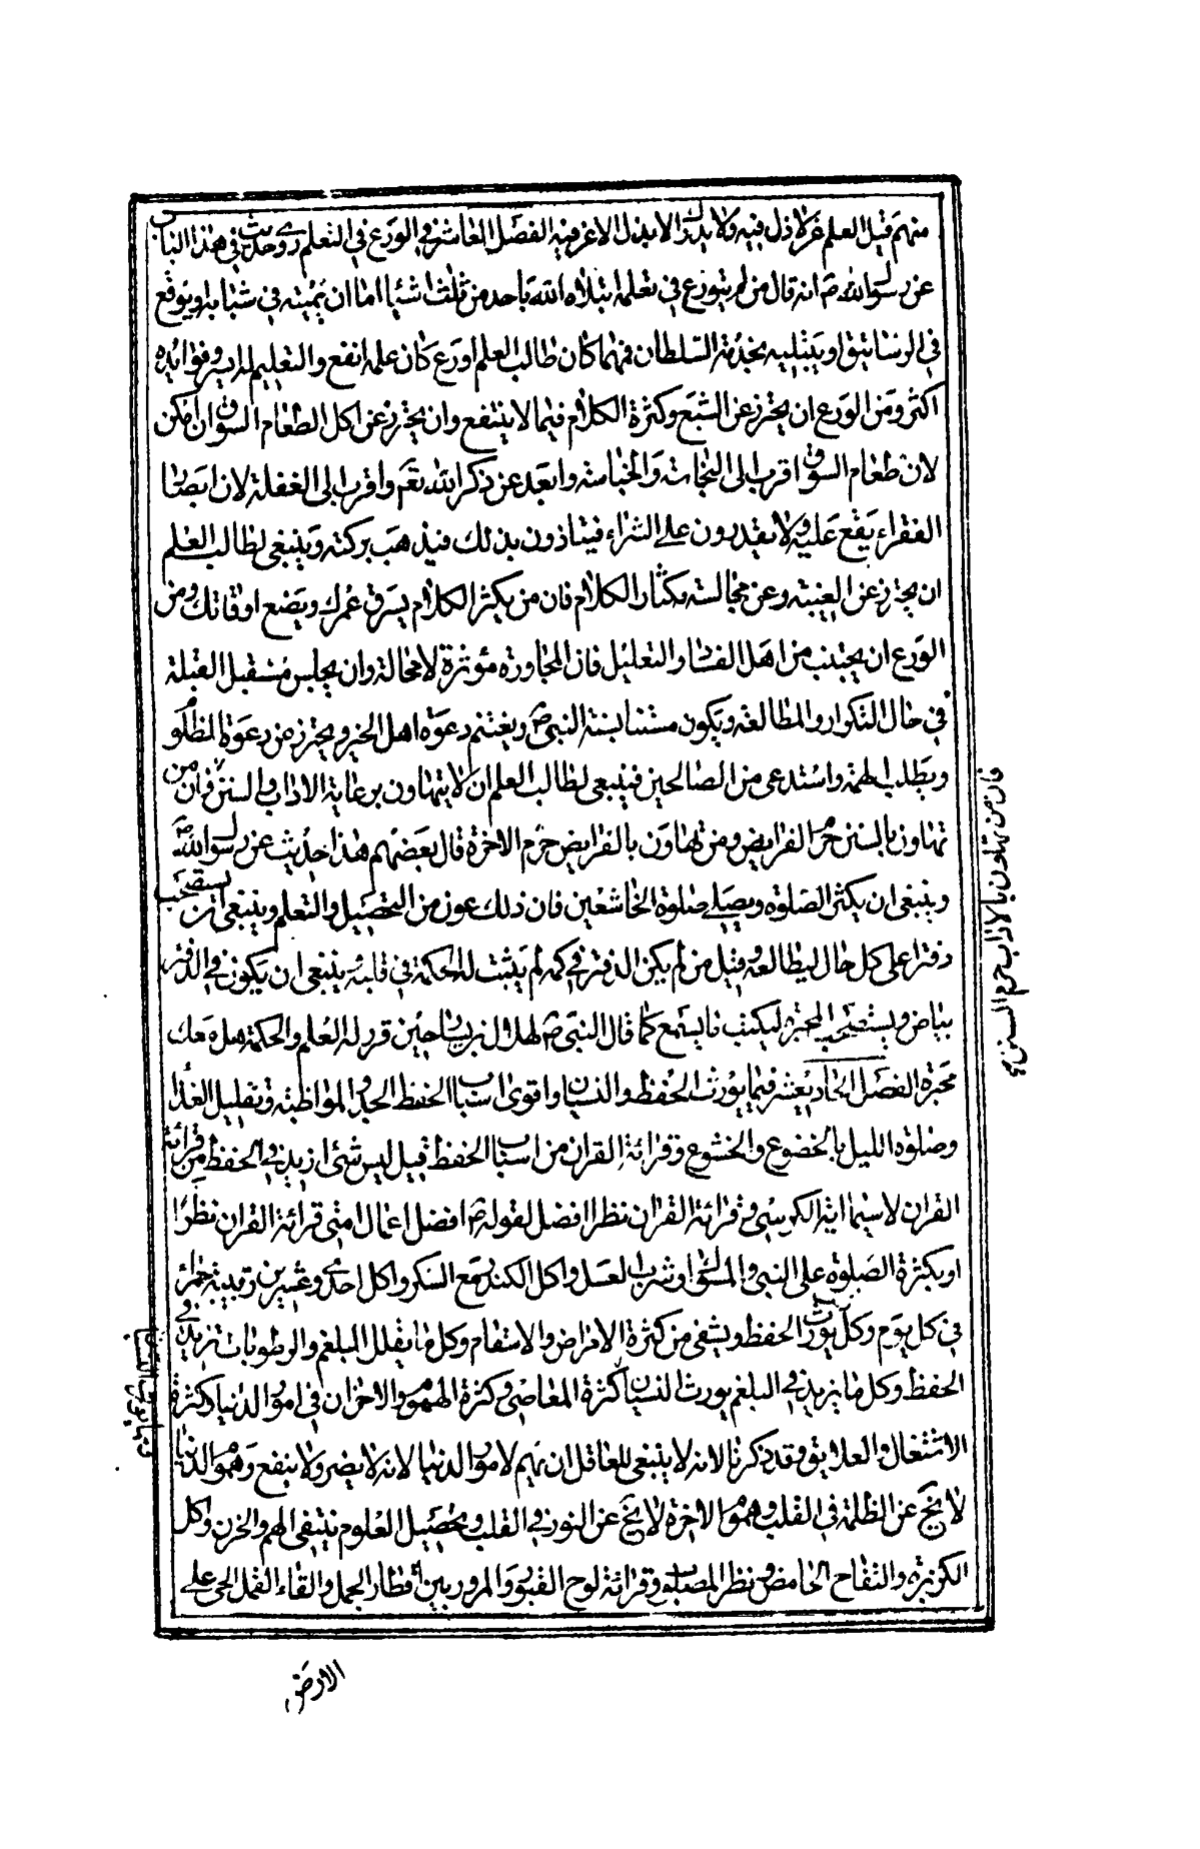 منهم قيل العلم عز لا ذل فيه ولا يدرك الا بذل لا عز فيه الفصل العاشر في الورع في التعلم روى حديث في هذا الباب
عن رسول الله ص انه قال من لم يتورع في تعلمه ابتلاه الله باحد من ثلث اشيا اما ان يميته في شبابه ويوقع
في الرساتيق او يبتليه بخدمة السلطان فمهما كان طالب العلم اورع كان علمه انفع والتعليم له ايسر وفوائده
اكثر ومن الورع ان يحترز عن الشبع وكثرة الكلام فيما لا ينتفع وان يحترز عن اكل الطعام السوق ان امكن
لان طعام السوق اقرب الى النجاسة والخباسته وابعد عن ذكر الله تعم واقرب الى الغفلة لان ابصار
الفقراء يقع عليه ولا يقدرون على الشراء فيتاذون بذلك فيذهب بركته وينبغي لطالب العلم
ان يحترز عن الغيبته وعن مجالسته مكثار الكلام فان من يكثر الكلام يسرق عمرك ويضع اوقاتك ومن
الورع ان يجتنب من اهل الفساد والتعليل فان المجاورة مؤثرة لا محالة وان يجلس مستقبل القبلة
في حال التكرار والمطالعة ويكون مستنا بسنة النبي ص ويغتنم دعوة اهل الخير ويحترز من دعوة المظلو
ويطلب لهمة واستدعى من الصالحين فينبغي لطالب العلم ان لا يتهاون برعاية الاداب والسنن فان من
تهاون بالسنن حرم الفرايض ومن تهاون بالفرايض حرم الاخرة قال بعضهم هذا حديث عن رسول الله ص
وينبغي ان يكثر الصلوة ويصلي صلوة الخاشعين فان ذلك عون من التحصيل والتعلم وينبغي ان يستصحب
دفترا على كل حال ليطالعه وقيل من لم يكن الدفتر في كمه لم يثبت له الحكمة في قلبه وينبغي ان يكون في الدفتر
بياض ويستصحب المحبرة ليكتب ما يسمع كما قال النبي ص لهلال بن يسار حين قرر له العلم والحكمة هل معك
محبرة الفصل الحاد يعشر فيما يورث الحفظ والنسيان واقوى اسباب الحفظ الجد والمواظبة وتقليل الغذا
وصلوة الليل بالخضوع والخشوع وقرائة القران من اسباب الحفظ قيل ليس شئ ازيد في الحفظ من قرائة
القران لا سيما اية الكرسي وقرائة القران نظرا افضل لقوله ص افضل اعمال امتي قرائة القران نظرا
او بكثرة الصلوة على النبي والمسواك وشرب العسل واكل الكندر مع السكر واكل احدى وعشرين زبيبة حمراء
في كل يوم وكل يورث الحفظ ويشفي من كثرة الامراض والاسقام وكل ما يقلل البلغم والرطوبات تزيد في
الحفظ وكل ما يزيد في البلغم يورث النسيان كثرة المعاصي وكثرة الهموم والاحزان في امور الدنيا وكثرة
الاشتغال والعلايق وقد ذكرنا لانه لا ينبغي للعاقل ان يهم لامور الدنيا لانه لا يضر ولا ينفع وهموم الدنيا
لا يخ عن الظلمة في القلب وهموم الاخرة لا يخ عن النور في القلب وتحصيل العلوم ينتفي الهم والحزن وكل
الكزبرة والتفاح الحامض ونظر المصلوب وقرائة لوح القبور والمرور بين قطار الجمل والقاء القمل الحي على
الارض
فان من تهاون بالاداب حرم السنن